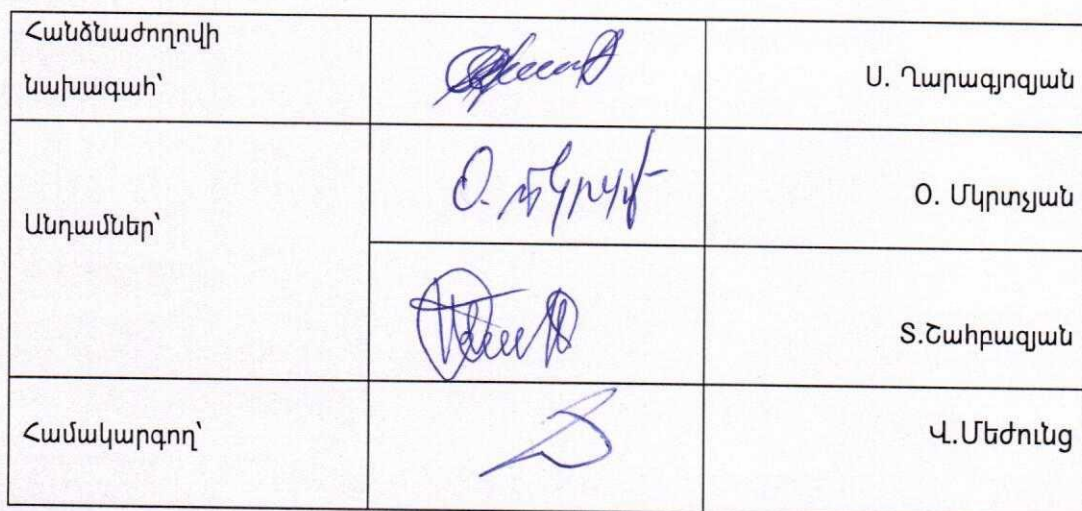 Հանձնաժողովի
նախագահ՝
Ս. Ղարագյոզյան
Անդամներ՝
Օ. Մկրտչյան
Տ.Շահբազյան
Համակարգող՝
Վ.Մեժունց